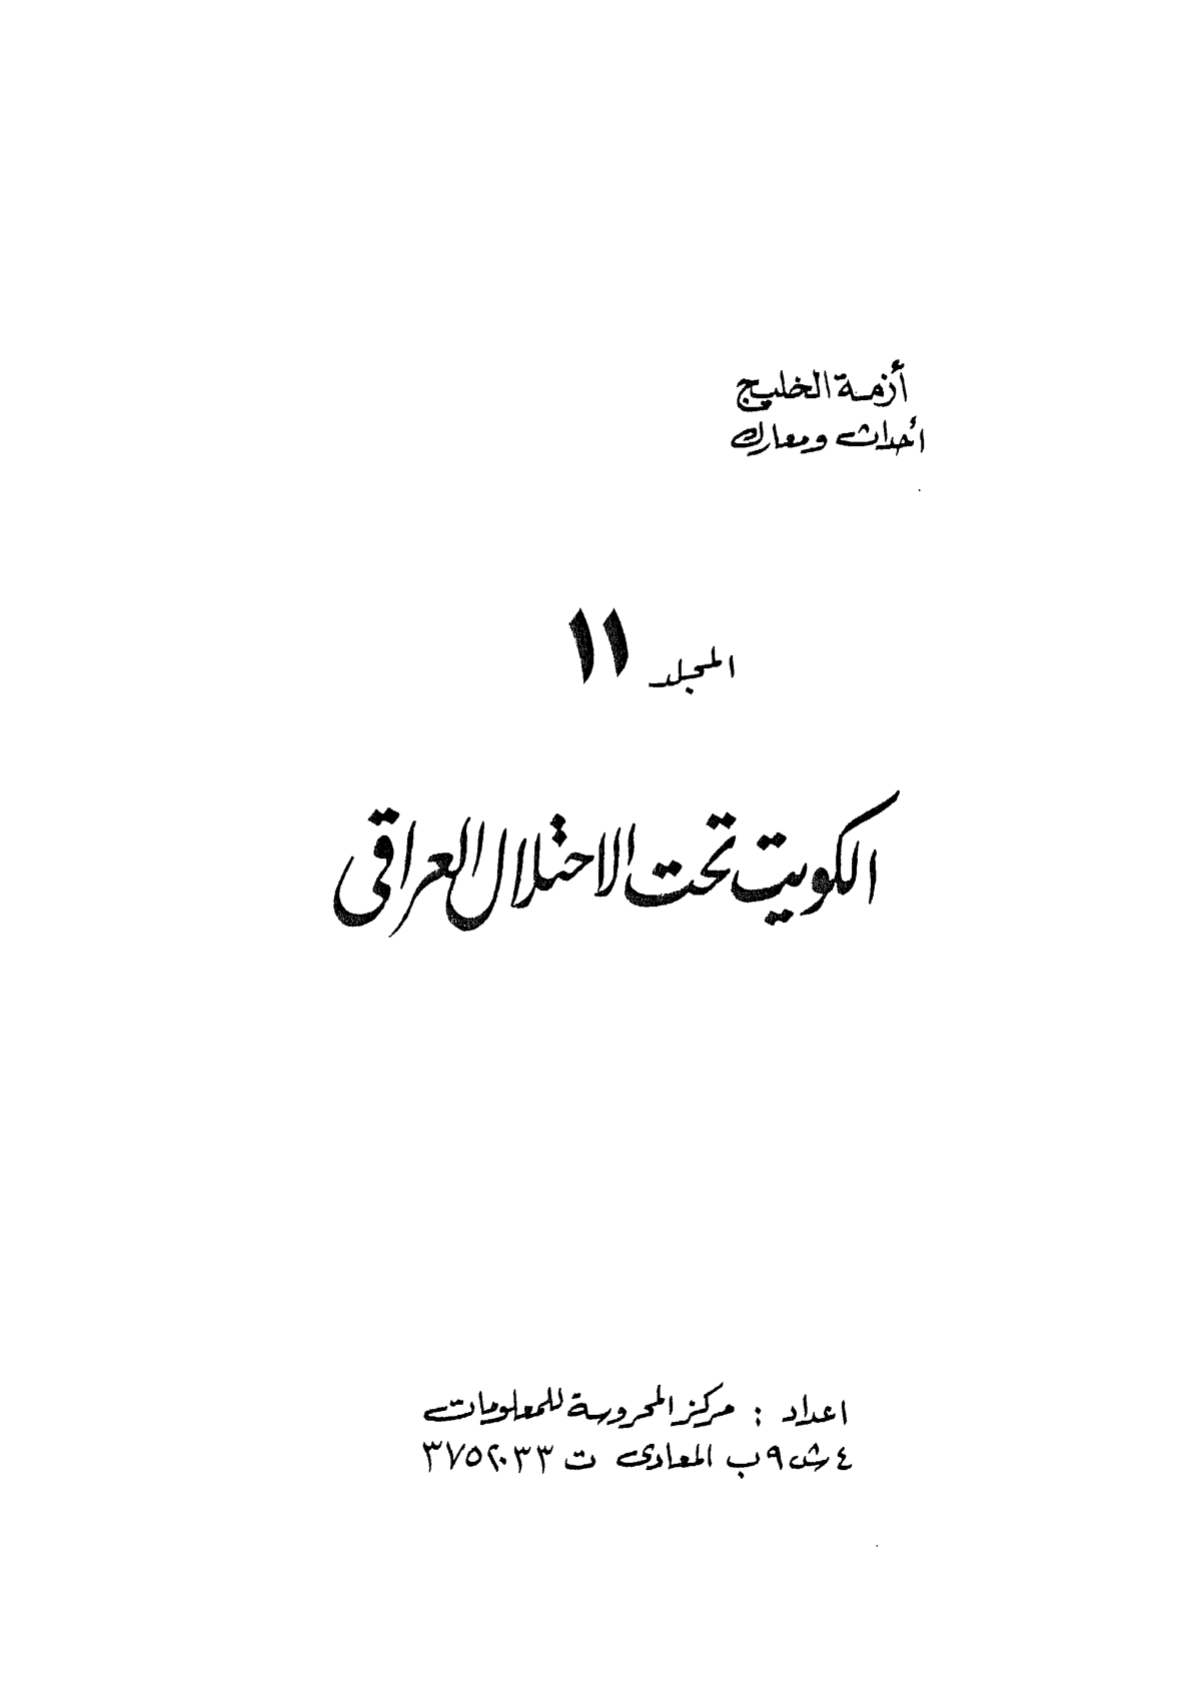 أزمة الخليج
أحداث ومعارك
المجلد ١١
الكويت تحت الاحتلال العراقى
اعداد : مركز المحروسة للمعلومات
٤ ش ٩ب المعادى ت ٣٧٥٢٠٣٣